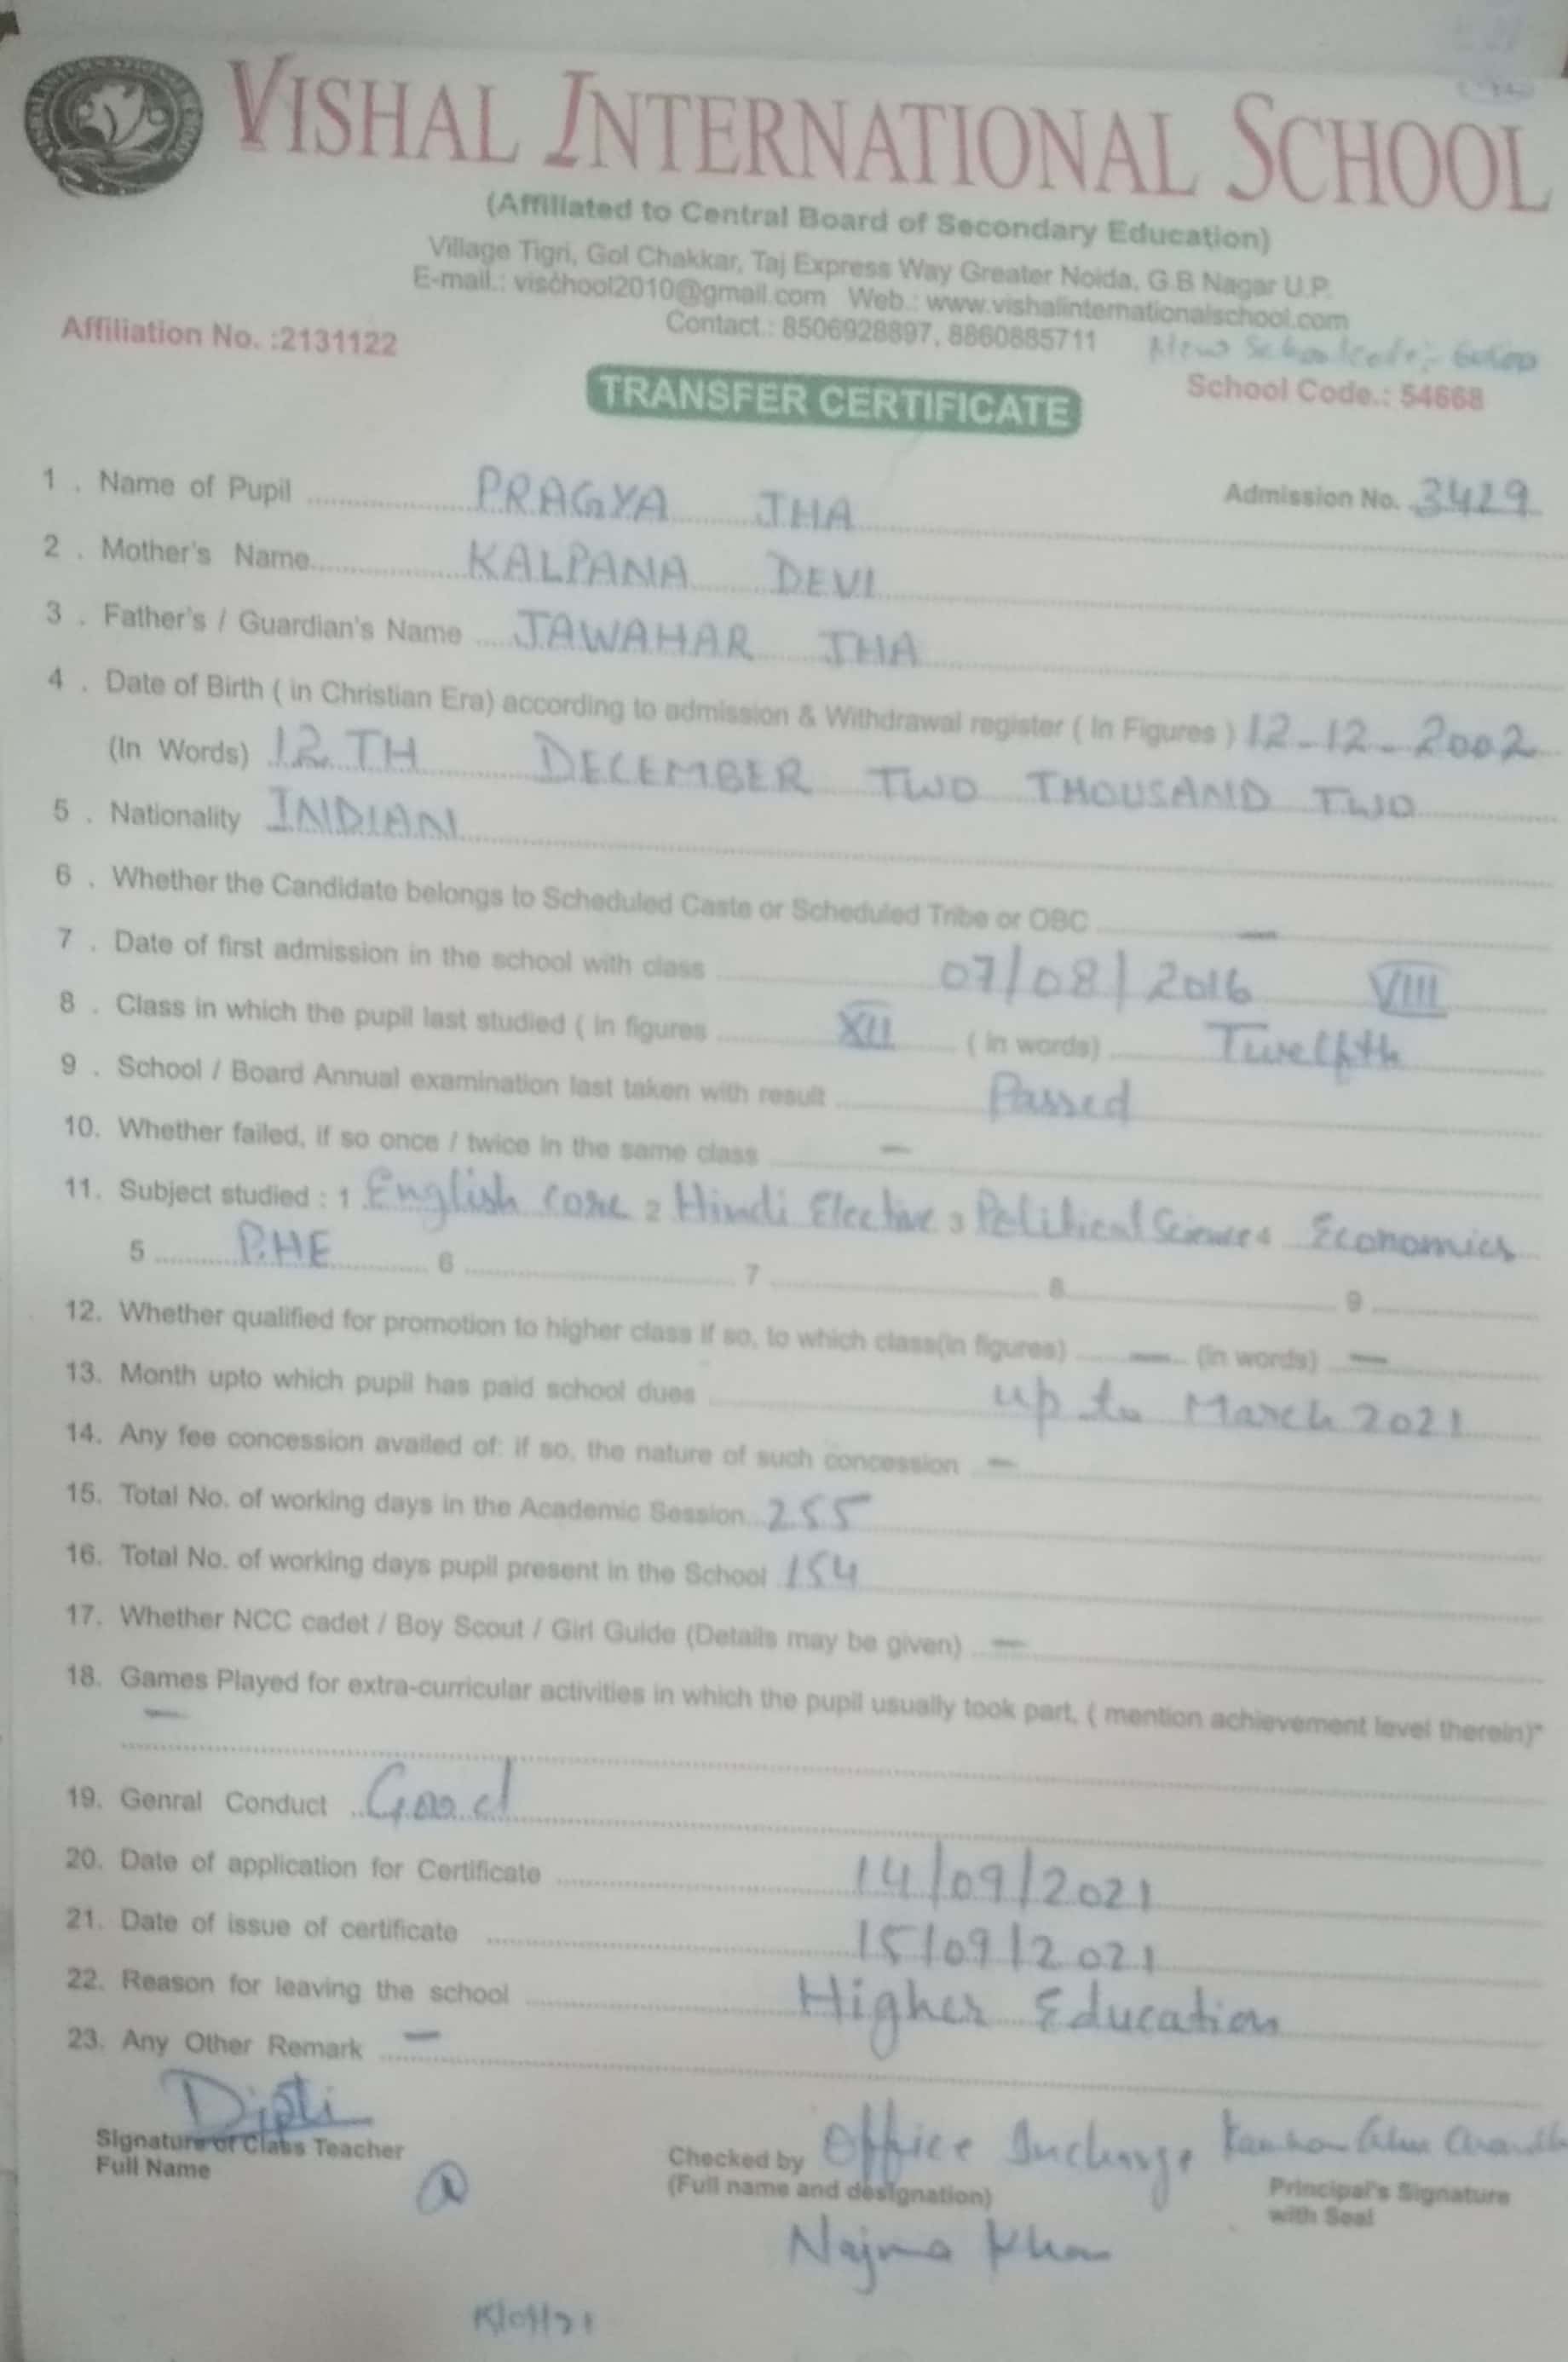 VISHAL INTERNATIONAL SCHOOL
(Affiliated to Central Board of Secondary Education)
Village Tigri, Gol Chakkar, Taj Express Way Greater Noida, G.B Nagar U.P.
E-mail.: vischool2010@gmail.com Web.: www.vishalinternationalschool.com
Contact.: 8506928897, 8860885711
Affiliation No. :2131122
New School code:-
School Code.: 54668
TRANSFER CERTIFICATE
1 . Name of Pupil PRAGYA JHA Admission No. 3429
2 . Mother's Name KALPANA DEVI
3 . Father's / Guardian's Name JAWAHAR JHA
4 . Date of Birth ( in Christian Era) according to admission & Withdrawal register ( In Figures ) 12-12-2002
(In Words) 12TH DECEMBER TWO THOUSAND TWO
5 . Nationality INDIAN
6 . Whether the Candidate belongs to Scheduled Caste or Scheduled Tribe or OBC —
7 . Date of first admission in the school with class 07/08/2016 VIII
8 . Class in which the pupil last studied ( in figures XII ( in words) Twelfth
9 . School / Board Annual examination last taken with result Passed
10. Whether failed, if so once / twice in the same class —
11. Subject studied : 1 English Core 2 Hindi Elective 3 Political Science 4 Economics
5 P.HE 6 7 8 9
12. Whether qualified for promotion to higher class if so, to which class(in figures) — (in words) —
13. Month upto which pupil has paid school dues up to March 2021
14. Any fee concession availed of: if so, the nature of such concession —
15. Total No. of working days in the Academic Session 255
16. Total No. of working days pupil present in the School 154
17. Whether NCC cadet / Boy Scout / Girl Guide (Details may be given) —
18. Games Played for extra-curricular activities in which the pupil usually took part, ( mention achievement level therein)*
—
19. Genral Conduct Good
20. Date of application for Certificate 14/09/2021
21. Date of issue of certificate 15/09/2021
22. Reason for leaving the school Higher Education
23. Any Other Remark —
Dipti
Signature of Class Teacher
Full Name
Checked by Office Incharge
(Full name and designation)
Najma Khan
Principal's Signature
with Seal